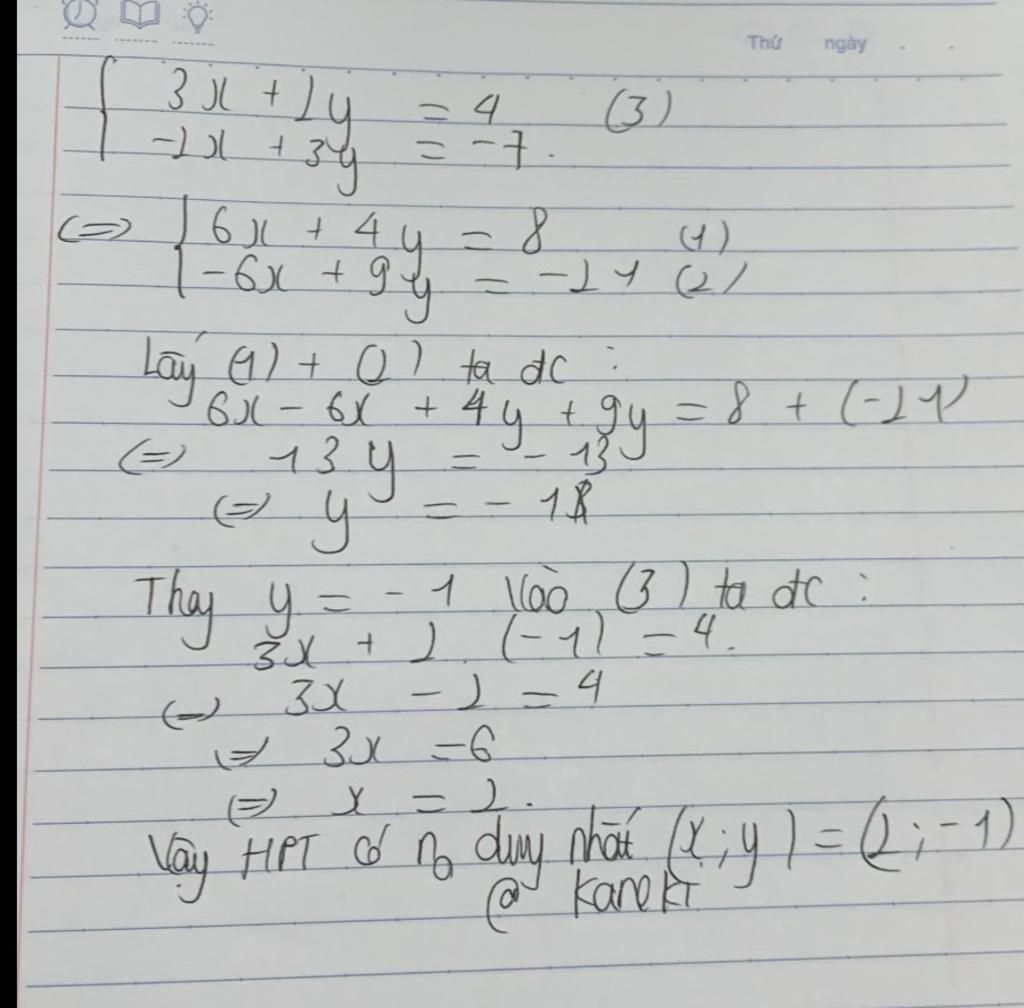 Thứ ngày
3x + 2y = 4 (3)
-2x + 3y = -7.
<=> 6x + 4y = 8 (1)
-6x + 9y = -21 (2)
Lấy (1) + (2) ta đc :
6x - 6x + 4y + 9y = 8 + (-21)
<=> 13y = -13
<=> y = -1
Thay y = -1 vào (3) ta đc :
3x + 2.(-1) = 4.
<=> 3x - 2 = 4
<=> 3x = 6
<=> x = 2.
Vậy HPT có n0 duy nhất (x;y) = (2;-1)
@ KaneKT